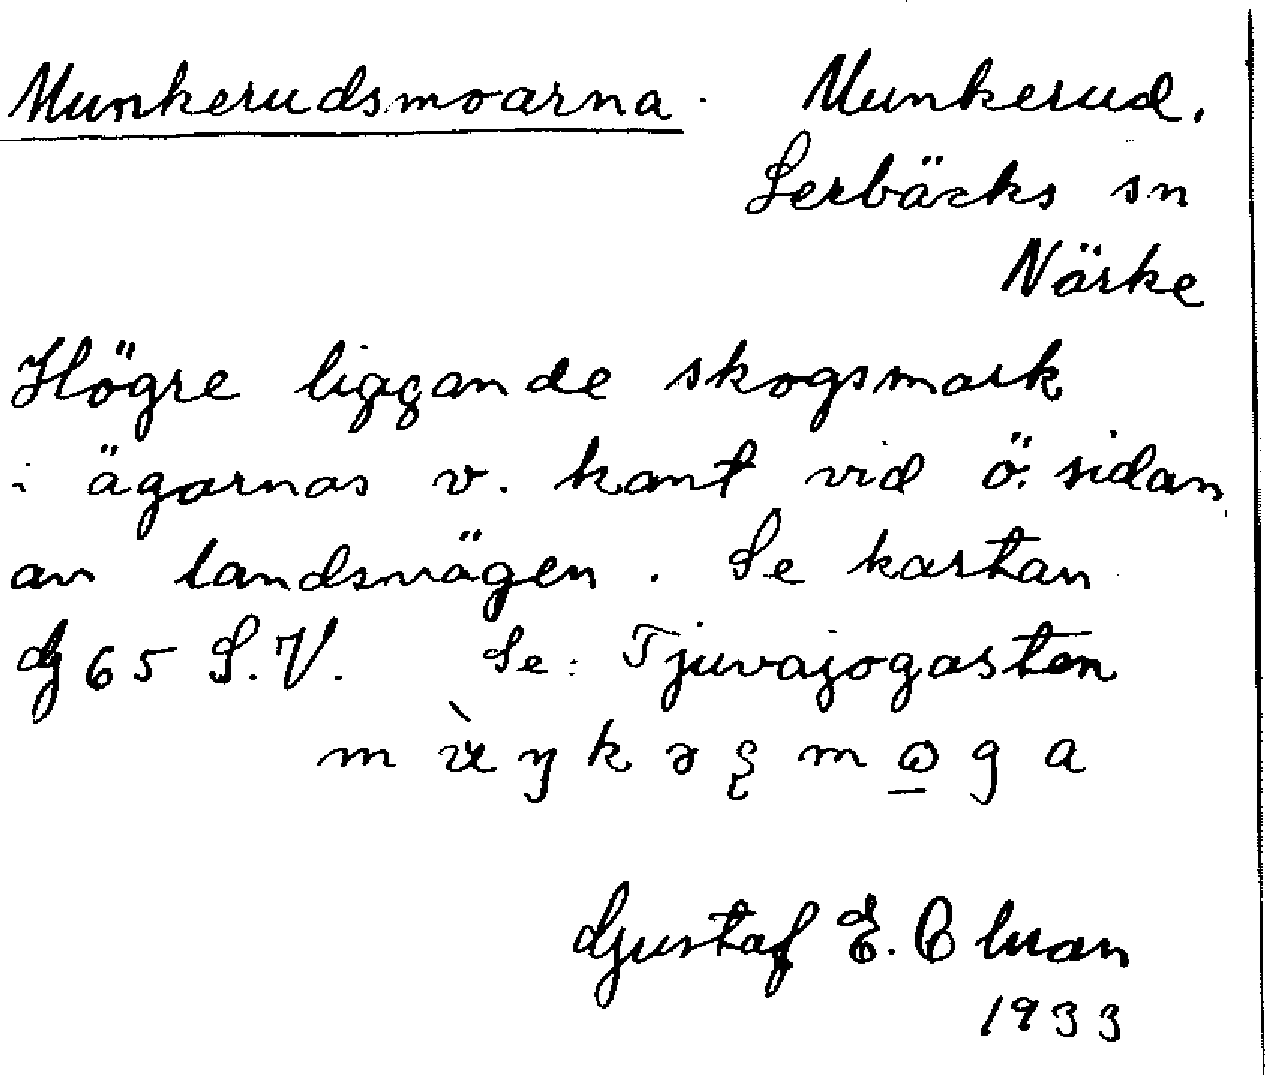 Munkerudsmoarna. Munkerud.
Lerbäcks sn
Närke
Högre liggande skogsmark
i ägornas v. kant vid ö. sidan
av landsvägen. Se kartan
G 65 S.V. Se: Tjuvajogasten
Gustaf E.
1933